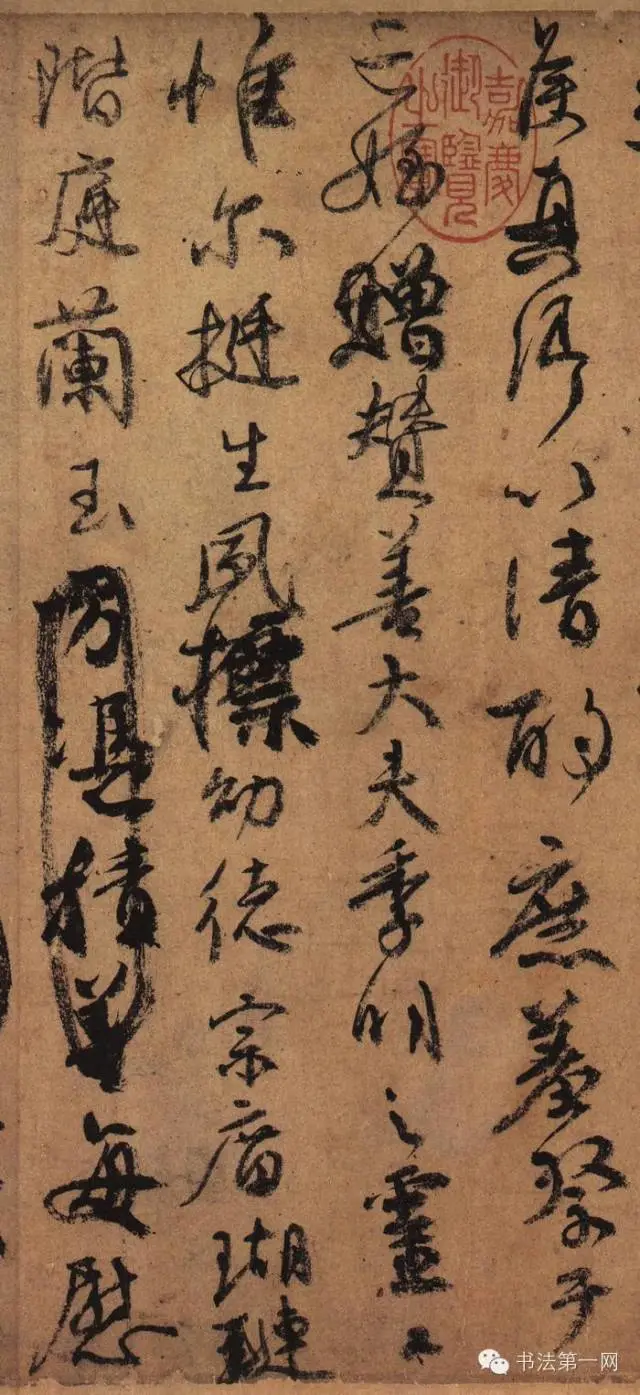 侯真卿以清酌庶羞祭于
亡姪贈贊善大夫季明之靈曰
惟尔挺生夙標幼德宗廟瑚璉
階庭蘭玉方憑積善每慰
嘉慶御覽之寶
书法第一网